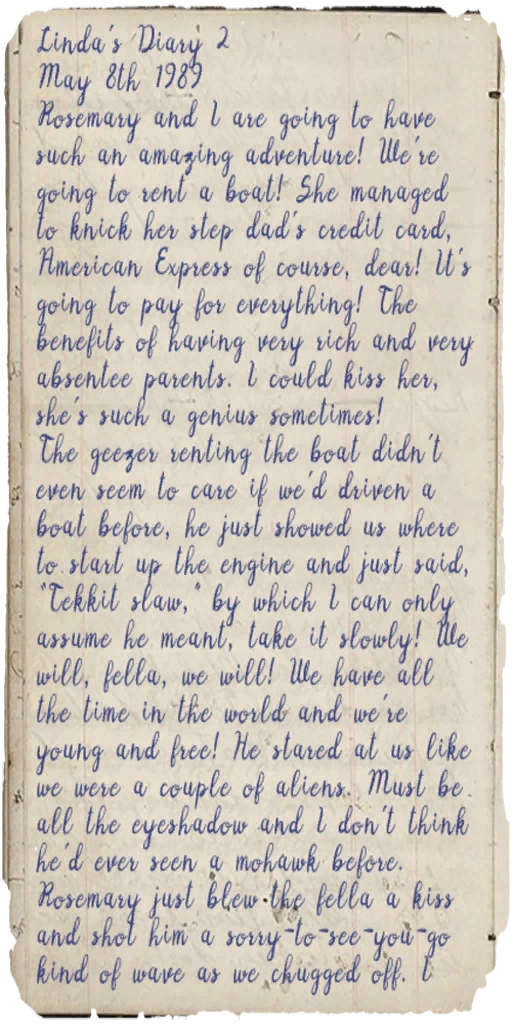 Linda's Diary 2
May 8th 1989
Rosemary and I are going to have
such an amazing adventure! We're
going to rent a boat! She managed
to knick her step dad's credit card,
American Express of course, dear! It's
going to pay for everything! The
benefits of having very rich and very
absentee parents. I could kiss her,
she's such a genius sometimes!
The geezer renting the boat didn't
even seem to care if we'd driven a
boat before, he just showed us where
to start up the engine and just said,
"Tekkit slaw," by which I can only
assume he meant, take it slowly! We
will, fella, we will! We have all
the time in the world and we're
young and free! He stared at us like
we were a couple of aliens. Must be
all the eyeshadow and I don't think
he'd ever seen a mohawk before.
Rosemary just blew the fella a kiss
and shot him a sorry-to-see-you-go
kind of wave as we chugged off. I